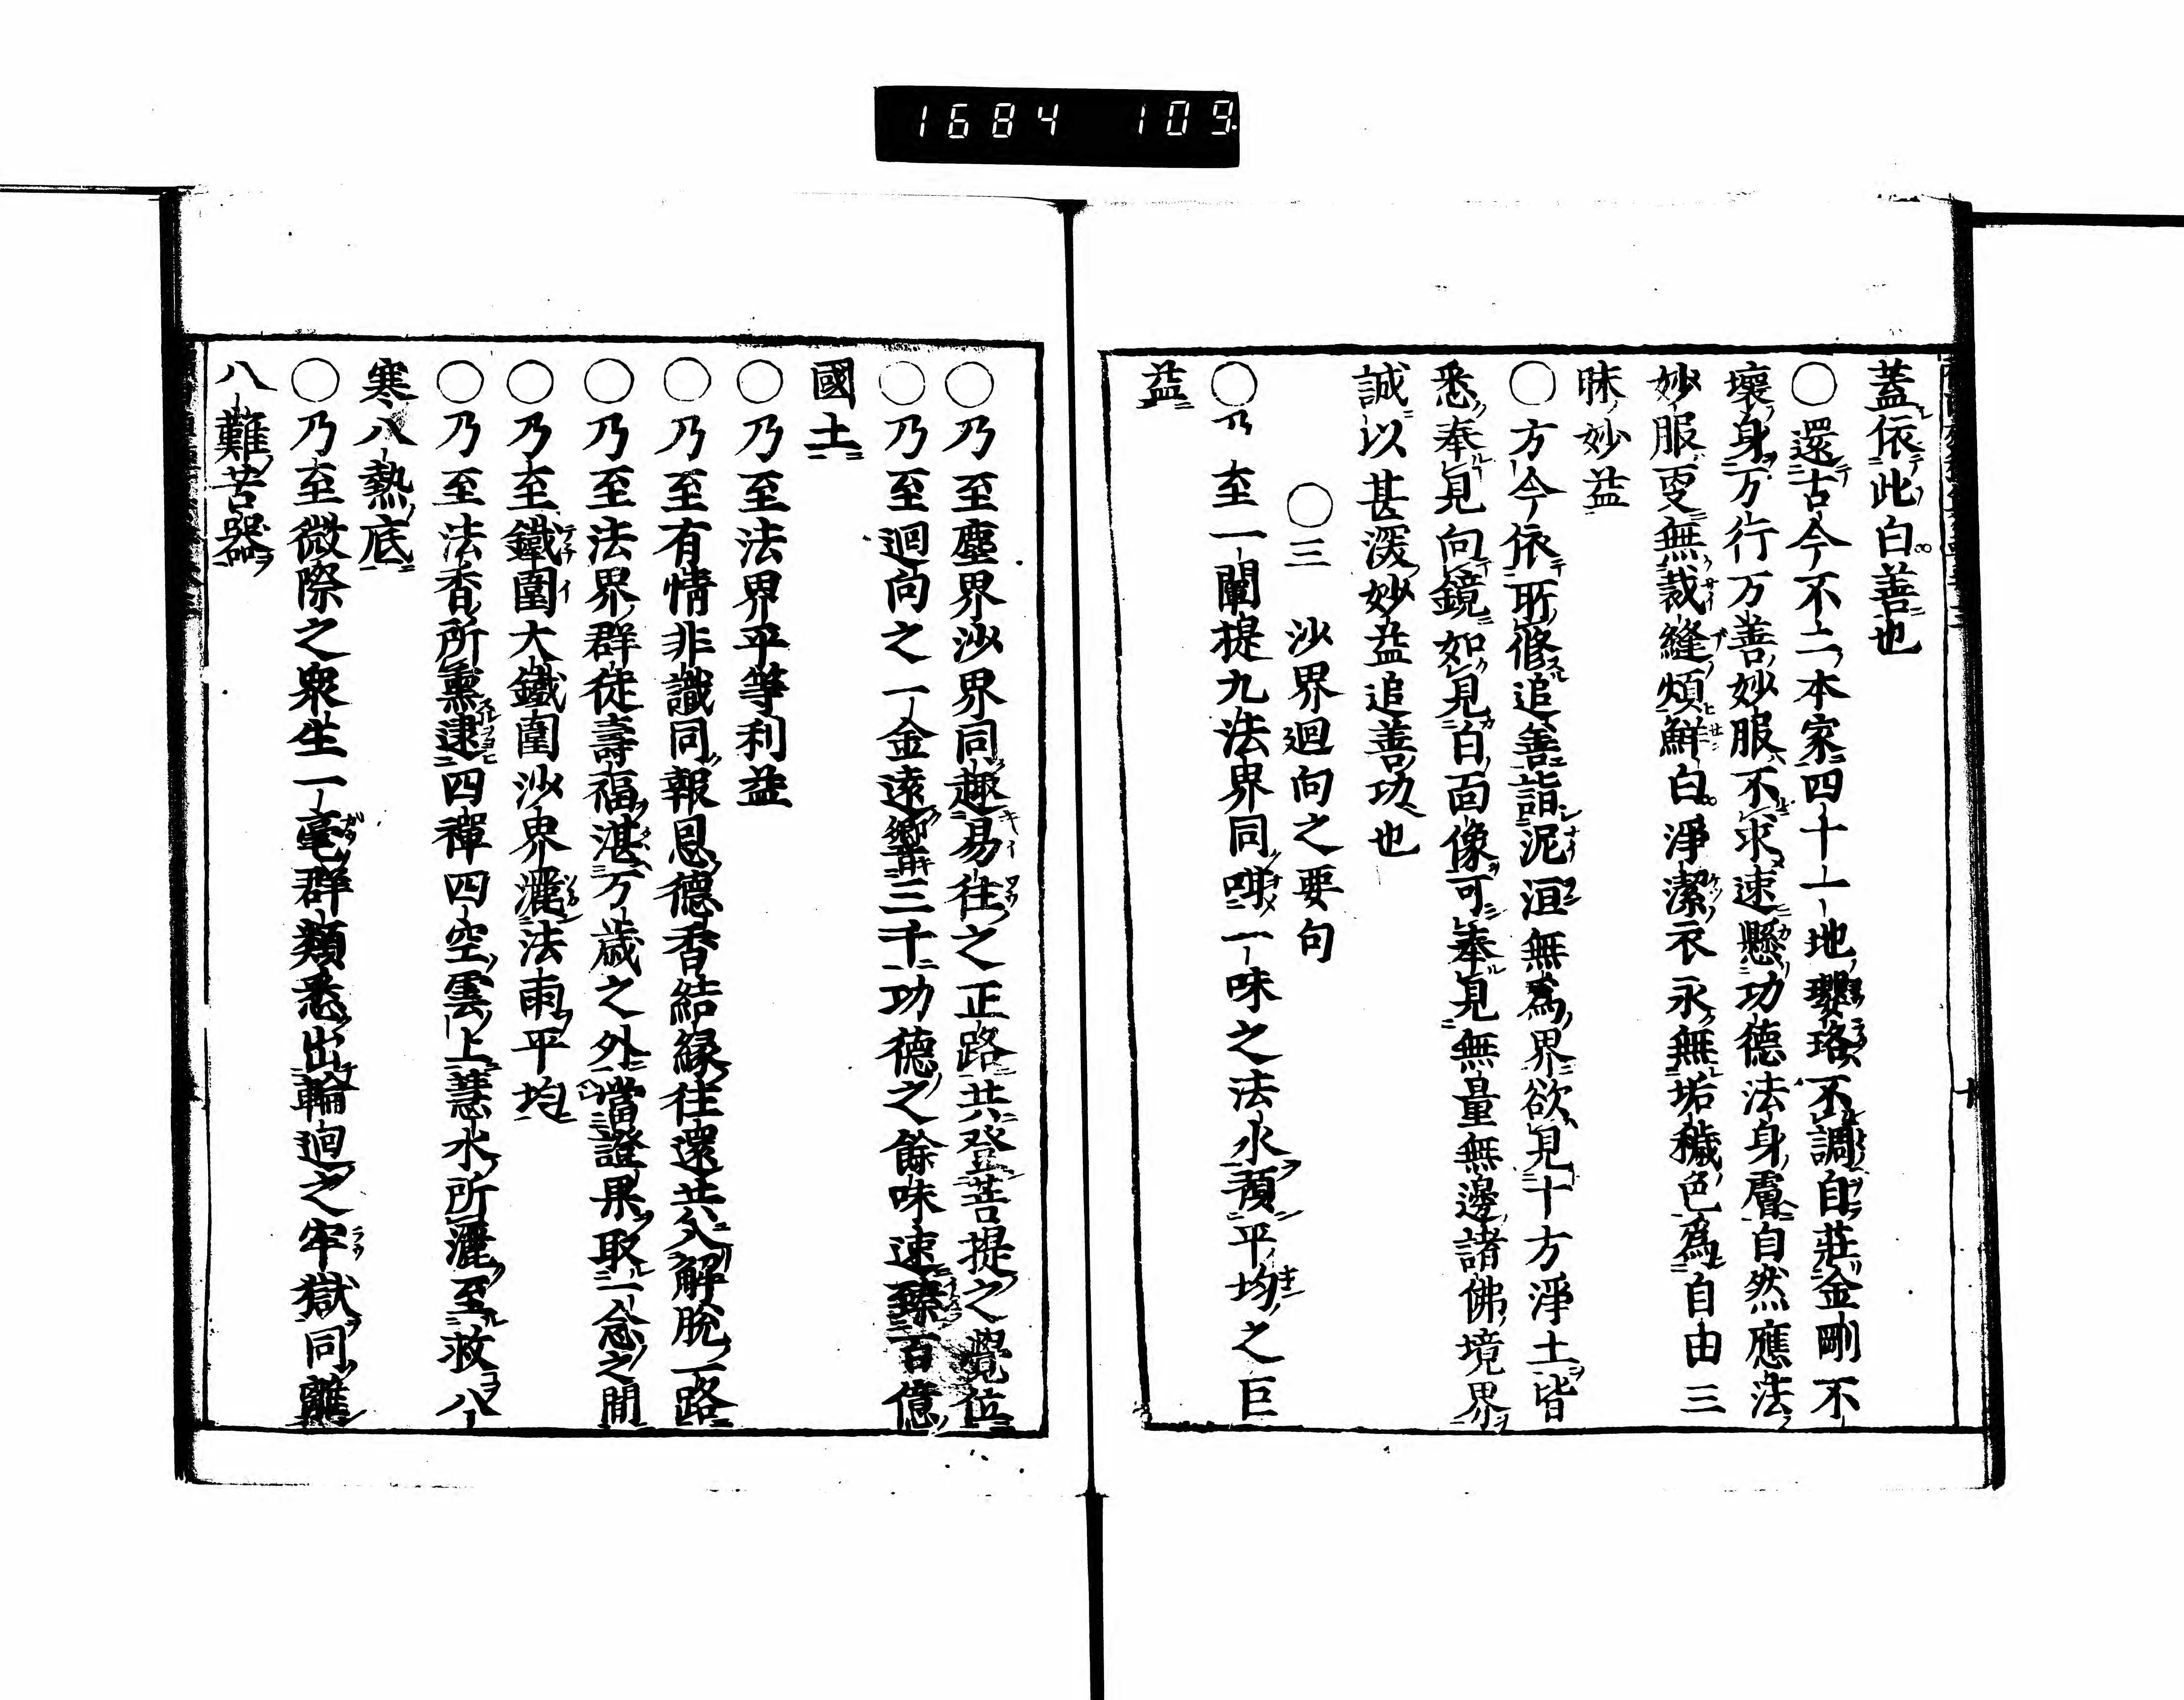 1684 109
蓋依此白善也
○還古今不二本家四十一地瓔珞不調自莊金剛不
壞身万行万善妙服不求速懸功德法身膚自然應法
妙服更無裁縫煩鮮白淨潔衣永無垢穢色為自由三
昧妙益
○方今依所修追善詣泥洹無為界欲見十方淨土皆
悉奉見向鏡如見自面像可奉見無量無邊諸佛境界
誠以甚深妙益追善功也
○三 沙界迴向之要句
○乃至一闡提九法界同嘗一味之法水預平均之巨
益
○乃至塵界沙界同趣易往之正路共登菩提之覺位
○乃至迴向之一金遠響三千功德之餘味速臻百億
國土
○乃至法界平等利益
○乃至有情非識同報恩德香結緣往還共入解脫一路
○乃至法界群徒壽福湛万歲之外當證果取一念之間
○乃至鐵圍大鐵圍沙界灑法雨平均
○乃至法香所熏逮四禪四空雲上慧水所灑至救八
寒八熱底
○乃至微際之衆生一毫群類悉出輪迴之牢獄同離
八難苦器